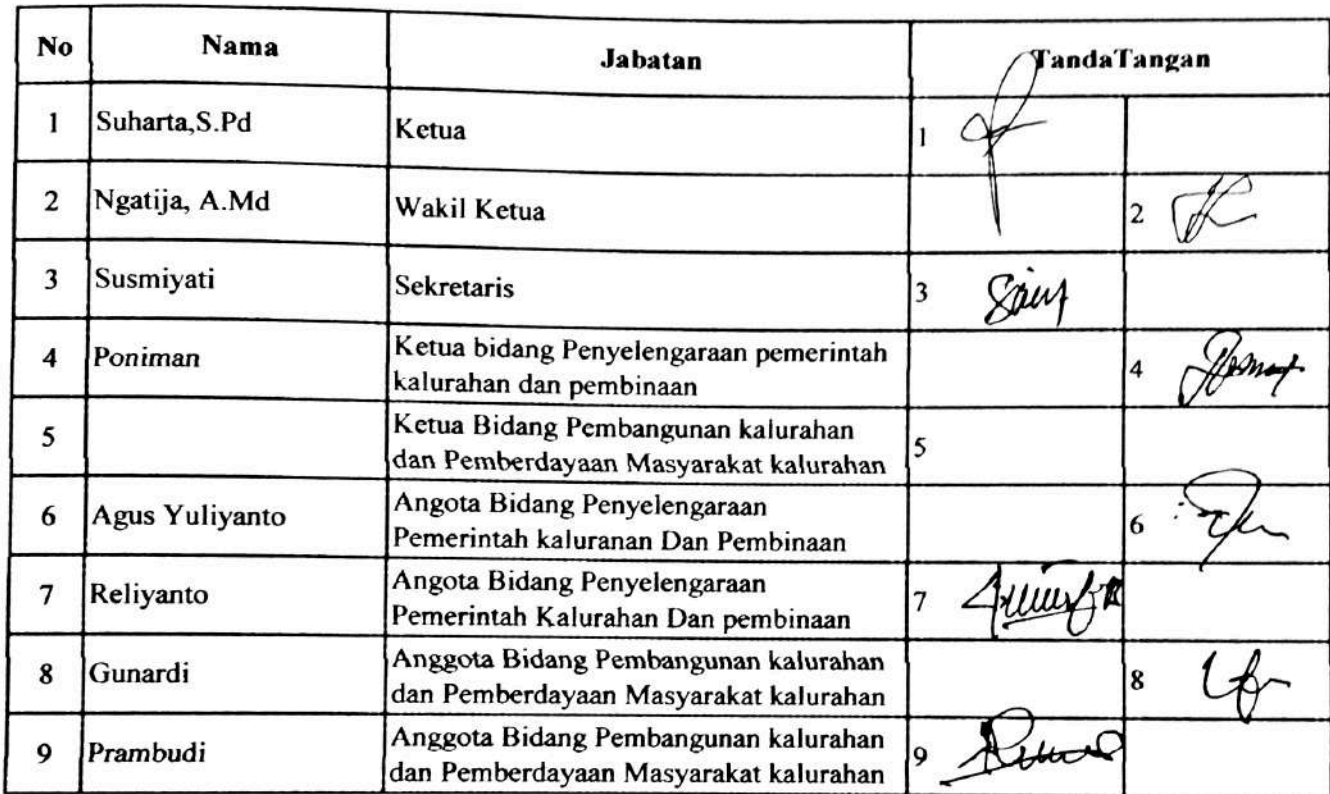 No Nama Jabatan TandaTangan
1 Suharta,S.Pd Ketua 1
2 Ngatija, A.Md Wakil Ketua 2
3 Susmiyati Sekretaris 3
4 Poniman Ketua bidang Penyelengaraan pemerintah
kalurahan dan pembinaan 4
5 Ketua Bidang Pembangunan kalurahan
dan Pemberdayaan Masyarakat kalurahan 5
6 Agus Yuliyanto Angota Bidang Penyelengaraan
Pemerintah kaluranan Dan Pembinaan 6
7 Reliyanto Angota Bidang Penyelengaraan
Pemerintah Kalurahan Dan pembinaan 7
8 Gunardi Anggota Bidang Pembangunan kalurahan
dan Pemberdayaan Masyarakat kalurahan 8
9 Prambudi Anggota Bidang Pembangunan kalurahan
dan Pemberdayaan Masyarakat kalurahan 9